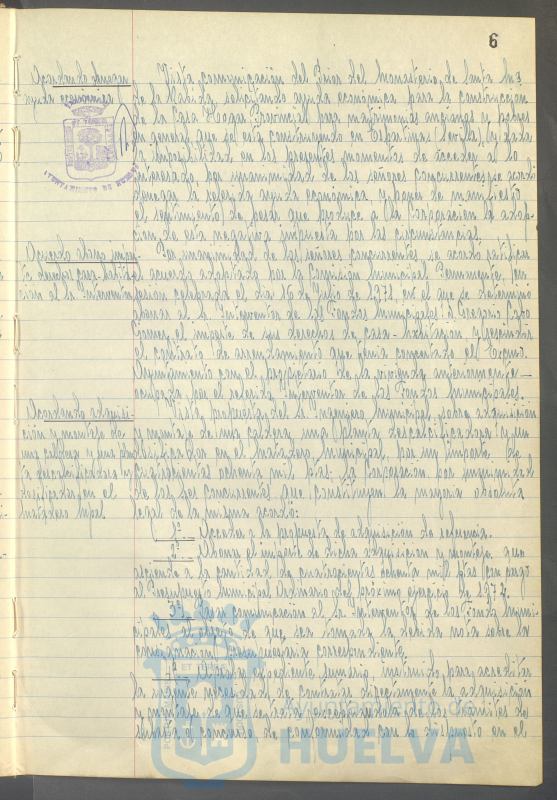 6
Acordando denegar
ayuda económica
AYUNTAMIENTO DE HUELVA
Vista comunicación del Prior del Monasterio de Santa
de la Rábida, solicitando ayuda económica para la construcción
de la Casa Hogar Provincial para matrimonios ancianos y pobres
en general que se está construyendo en Espartinas (Sevilla), y dada
la imposibilidad en los presentes momentos de acceder a lo
interesado, por unanimidad de los señores concurrentes se acordó
denegar la referida ayuda económica, y poner de manifiesto
el sentimiento de pesar que produce a la Corporación la adop-
ción de esta negativa impuesta por las circunstancias.
Acuerdo abono impor-
te derechos casa-habita-
ción al Sr. Interventor
Por unanimidad de los señores concurrentes se acordó ratificar
el acuerdo adoptado por la Comisión Municipal Permanente, en
sesión celebrada el día 16 de Julio de 1971, en el que se determinó
abonar al Sr. Interventor de los Fondos Municipales D.
Gómez, el importe de sus derechos de casa-habitación y rescindir
el contrato de arrendamiento que tenía concertado el Excmo.
Ayuntamiento con el propietario de la vivienda anteriormente
ocupada por el referido Interventor de los Fondos Municipales.
Acordando adquisi-
ción y montaje de
una caldera y una planta
descalcificadora y
dosificador en el
Matadero Mpal.
Vista propuesta del Sr. Ingeniero Municipal, sobre adquisición
y montaje de una caldera, una planta descalcificadora y un
dosificador en el Matadero Municipal, por un importe de
cuatrocientas ochenta mil ptas; la Corporación por unanimidad
de los Sres concurrentes que constituyen la mayoría absoluta
legal de la misma acordó:
1º Acceder a la propuesta de adquisición de referencia.
2º Abonar el importe de dicha adquisición y montaje que
asciende a la cantidad de cuatrocientas ochenta mil ptas con cargo
al Presupuesto Municipal Ordinario del próximo ejercicio de 1972.
3º Dar comunicación al Sr. Interventor de los Fondos Muni-
cipales al objeto de que sea tomada la debida nota sobre la
consignación presupuestaria correspondiente.
4º expediente sumario, instruido para acreditar
la urgente necesidad de contratar directamente la adquisición
y montaje que se trata, exceptuándola de los trámites de
subasta o concurso de conformidad con lo dispuesto en el
Ayuntamiento de
HUELVA